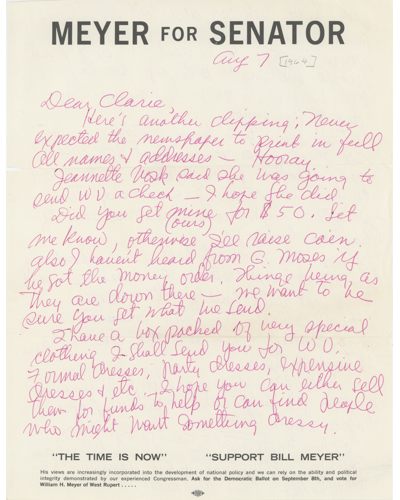 MEYER FOR SENATOR
Aug 7 [1964]
Dear Clarie,
Here's another clipping; Never
expected the newspaper to print in full
all names & addresses — Hooray.
Jeannette Vosk said she was going to
send WV a check — I hope she did.
Did you get mine for $50. Let
(ours)
me know, otherwise I'll raise Cain.
also I haven't heard from G. Moses if
he got the money order. Things being as
they are down there — we want to be
sure you get what we send.
I have a box packed of very special
clothing I shall send you for WV.
Formal dresses, party dresses, expensive
dresses & etc. I hope you can either sell
them for funds to help or can find people
who might want something dressy.
"THE TIME IS NOW" "SUPPORT BILL MEYER"
His views are increasingly incorporated into the development of national policy and we can rely on the ability and political
integrity demonstrated by our experienced Congressman. Ask for the Democratic Ballot on September 8th, and vote for
William H. Meyer of West Rupert . . . . .